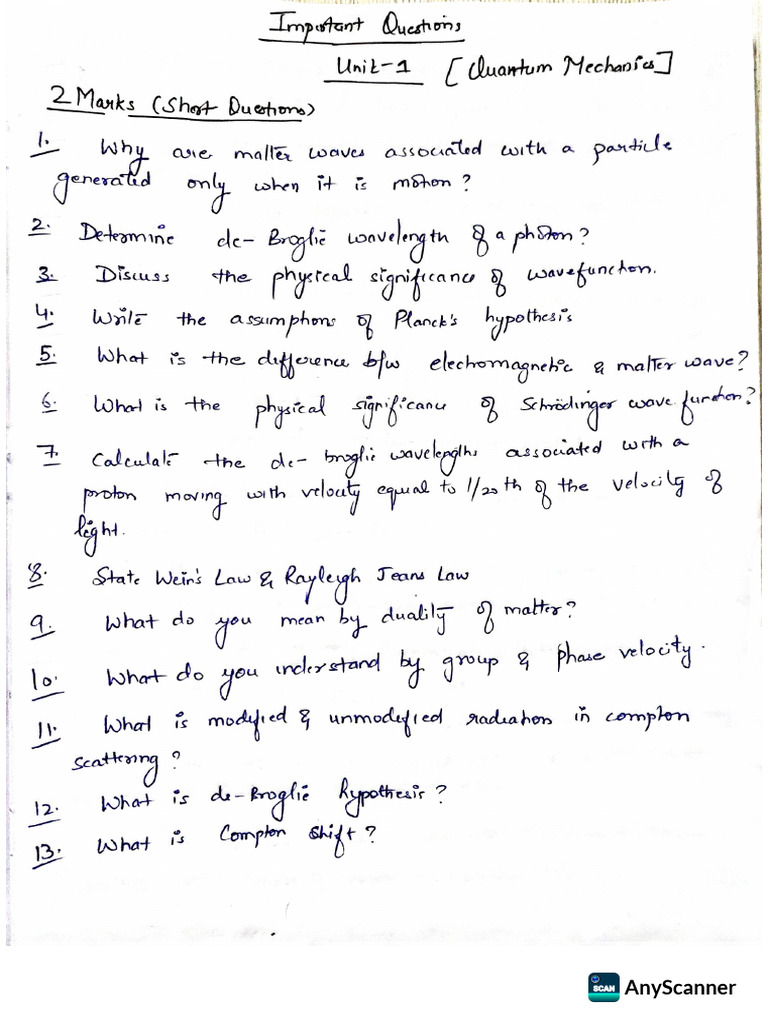 Important Questions
Unit-1 [Quantum Mechanics]
2 Marks (Short Questions)
1. Why are matter waves associated with a particle
generated only when it is motion?
2. Determine de-Broglie wavelength of a photon?
3. Discuss the physical significance of wavefunction.
4. Write the assumptions of Planck's hypothesis
5. What is the difference b/w electromagnetic & matter wave?
6. What is the physical significance of Schrödinger wave function?
7. Calculate the de-broglie wavelengths associated with a
proton moving with velocity equal to 1/20 th of the velocity of
light.
8. State Wein's Law & Rayleigh Jeans Law
9. What do you mean by duality of matter?
10. What do you understand by group & phase velocity.
11. What is modified & unmodified radiation in compton
scattering?
12. What is de-Broglie hypothesis?
13. What is Compton shift?
SCAN AnyScanner